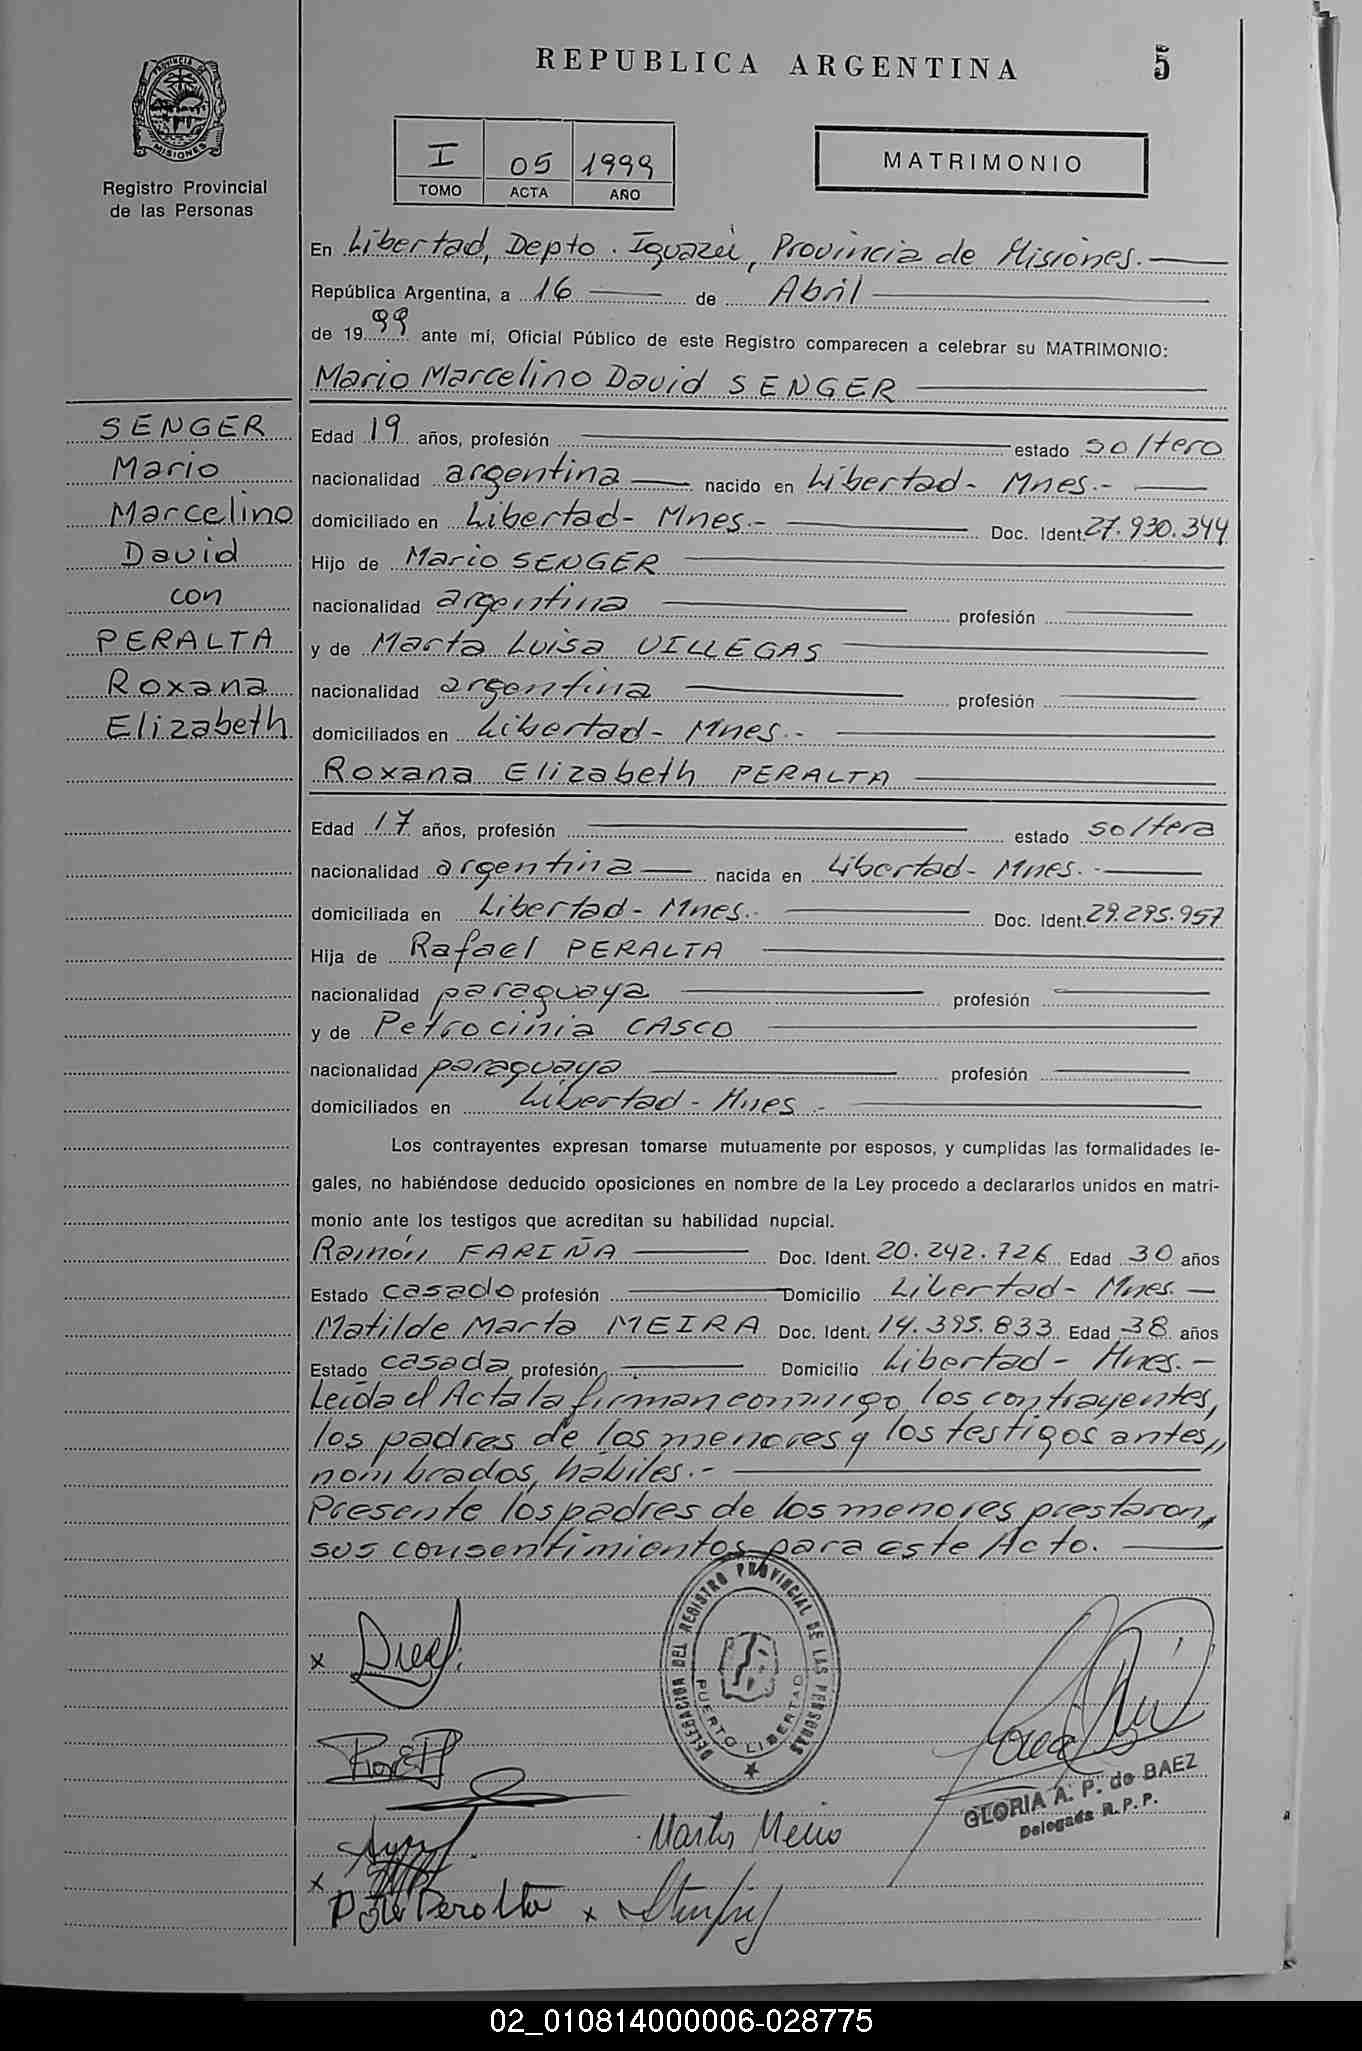 REPUBLICA ARGENTINA
5
PROVINCIA DE MISIONES
Registro Provincial
de las Personas
I 05 1999
TOMO ACTA AÑO
MATRIMONIO
En Libertad, Depto. Iguazú, Provincia de Misiones.-
República Argentina, a 16 de Abril
de 1999 ante mí, Oficial Público de este Registro comparecen a celebrar su MATRIMONIO:
Mario Marcelino David SENGER
SENGER
Mario
Marcelino
David
con
PERALTA
Roxana
Elizabeth
Edad 19 años, profesión estado soltero
nacionalidad argentina nacido en Libertad- Mnes.-
domiciliado en Libertad- Mnes.- Doc. Ident. 27.930.344
Hijo de Mario SENGER
nacionalidad argentina profesión
y de Marta Luisa VILLEGAS
nacionalidad argentina profesión
domiciliados en Libertad- Mnes.-
Roxana Elizabeth PERALTA
Edad 17 años, profesión estado soltera
nacionalidad argentina nacida en Libertad- Mnes.-
domiciliada en Libertad- Mnes.- Doc. Ident. 29.295.957
Hija de Rafael PERALTA
nacionalidad paraguaya profesión
y de Petrocinia CASCO
nacionalidad paraguaya profesión
domiciliados en Libertad- Mnes.-
Los contrayentes expresan tomarse mutuamente por esposos, y cumplidas las formalidades le-
gales, no habiéndose deducido oposiciones en nombre de la Ley procedo a declararlos unidos en matri-
monio ante los testigos que acreditan su habilidad nupcial.
Ramón FARIÑA Doc. Ident. 20.242.726 Edad 30 años
Estado casado profesión Domicilio Libertad- Mnes.-
Matilde Marta MEIRA Doc. Ident. 14.395.833 Edad 38 años
Estado casada profesión Domicilio Libertad- Mnes.-
Leída el Acta la firman conmigo, los contrayentes,
los padres de los menores y los testigos antes,,
nombrados, hábiles.-
Presente los padres de los menores prestaron,,
sus consentimientos para este Acto.
DELEGACION DEL REGISTRO PROVINCIAL DE LAS PERSONAS
PUERTO LIBERTAD
x
GLORIA A. P. de BAEZ
Delegada R.P.P.
x
Peralta x
02_010814000006-028775